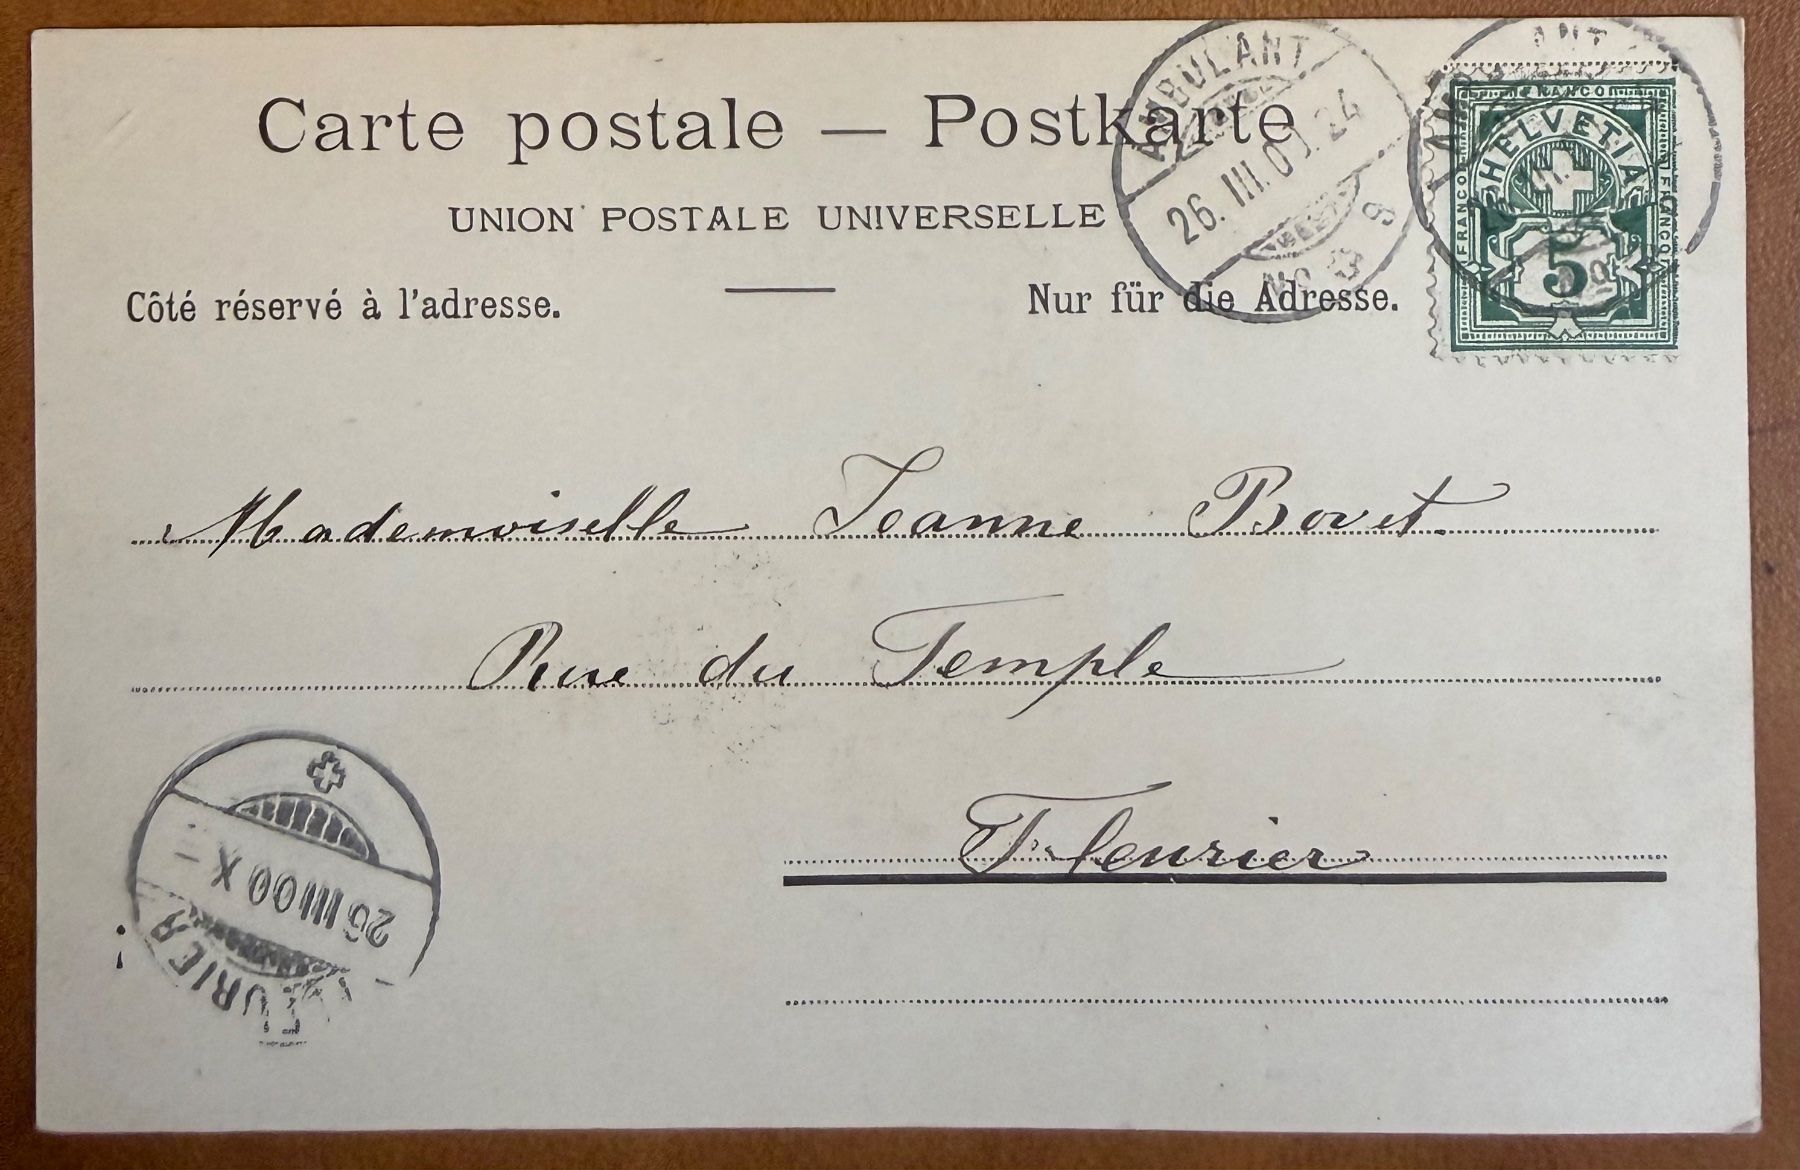 Carte postale — Postkarte
UNION POSTALE UNIVERSELLE
Côté réservé à l'adresse.
Nur für die Adresse.
AMBULANT
26. III. 00. 24
No 3
9
ANT
III.
FRANCO
FRANCO
FRANCO
HELVETIA
5
Mademoiselle Jeanne Bovet.
Rue du Temple
Fleurier
26 III 00 X –
FLEURIER